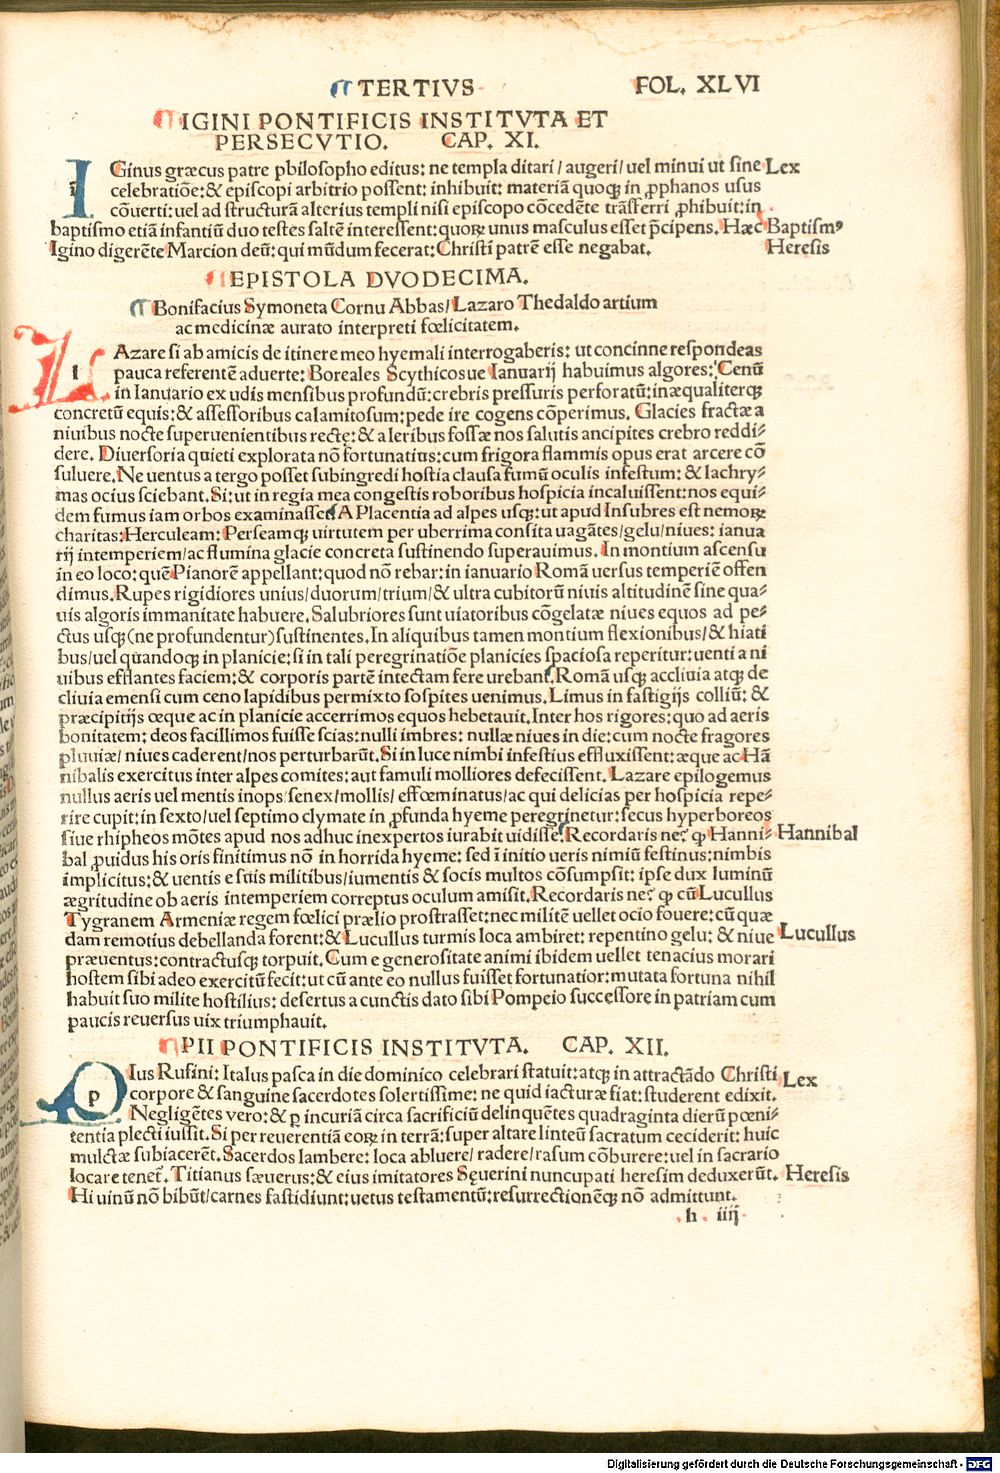 TERTIVS FOL. XLVI
IGINI PONTIFICIS INSTITVTA ET
PERSECVTIO. CAP. XI.
IGinus græcus patre philosopho editus: ne templa ditari/ augeri/ uel minui ut sine Lex
celebratiōe:& episcopi arbitrio possent: inhibuit: materiā quoqꝫ in ꝓphanos usus
cōuerti:uel ad structurā alterius templi nisi episcopo cōcedēte trāsferri ꝓhibuit:in
baptismo etiā infantiū duo testes saltē interessent:quoꝝ unus masculus esset p̄cipens. Hæc Baptismꝰ
Igino digerēte Marcion deū: qui mūdum fecerat: Christi patrē esse negabat. Heresis
EPISTOLA DVODECIMA.
Bonifacius Symoneta Cornu Abbas/Lazaro Thedaldo artium
ac medicinæ aurato interpreti fœlicitatem.
LAzare si ab amicis de itinere meo hyemali interrogaberis: ut concinne respondeas
pauca referentē aduerte: Boreales Scythicosue Ianuarij habuimus algores: Cenū
in Ianuario ex udis mensibus profundū:crebris pressuris perforatū:inæqualiterqꝫ
concretū equis:& assessoribus calamitosum:pede ire cogens cōperimus. Glacies fractæ a
niuibus nocte superuenientibus recte:& aleribus fossæ nos salutis ancipites crebro reddi⸗
dere. Diuersoria quieti explorata nō fortunatius:cum frigora flammis opus erat arcere cō
suluere. Ne uentus a tergo posset subingredi hostia clausa fumū oculis infestum: & lachry⸗
mas ocius sciebant. Si:ut in regia mea congestis roboribus hospicia incaluissent:nos equi⸗
dem fumus iam orbos examinasset A Placentia ad alpes usqꝫ:ut apud Insubres est nemoꝝ
charitas:Herculeam: Perseamqꝫ uirtutem per uberrima consita uagātes/gelu/niues: ianua
rij intemperiem/ac flumina glacie concreta sustinendo superauimus. In montium ascensu
in eo loco: quē Pianorē appellant:quod nō rebar:in ianuario Romā uersus temperiē offen
dimus. Rupes rigidiores unius/duorum/trium/& ultra cubitorū niuis altitudinē sine qua⸗
uis algoris immanitate habuere. Salubriores sunt uiatoribus cōgelatæ niues equos ad pe⸗
ctus usqꝫ(ne profundentur)sustinentes. In aliquibus tamen montium flexionibus/& hiati
bus/uel quandoqꝫ in planicie:si in tali peregrinatiōe planicies spaciosa reperitur:uenti a ni
uibus efflantes faciem:& corporis partē intectam fere urebant. Romā usqꝫ accliuia atqꝫ de
cliuia emensi cum ceno lapidibus permixto sospites uenimus. Limus in fastigijs colliū: &
præcipitijs œque ac in planicie accerrimos equos hebetauit. Inter hos rigores: quo ad aeris
bonitatem: deos facillimos fuisse scias:nulli imbres: nullæ niues in die: cum nocte fragores
pluuiæ/ niues caderent/nos perturbarūt. Si in luce nimbi infestius effluxissent:æque ac Hā
nibalis exercitus inter alpes comites: aut famuli molliores defecissent. Lazare epilogemus
nullus aeris uel mentis inops senex/mollis/ effœminatus/ac qui delicias per hospicia repe⸗
rire cupit: in sexto/uel septimo clymate in ꝓfunda hyeme peregrinetur: secus hyperboreos
siue rhipheos mōtes apud nos adhuc inexpertos iurabit uidisse. Recordaris ne? ꝙ Hanni⸗ Hannibal
bal ꝓuidus his oris finitimus nō in horrida hyeme: sed ī initio ueris nimiū festinus:nimbis
implicitus:& uentis e suis militibus/iumentis & socis multos cōsumpsit: ipse dux luminū
ægritudine ob aeris intemperiem correptus oculum amisit. Recordaris ne? ꝙ cū Lucullus
Tygranem Armeniæ regem fœlici prælio prostrasset:nec militē uellet ocio fouere:cū quæ
dam remotius debellanda forent:& Lucullus turmis loca ambiret: repentino gelu: & niue Lucullus
præuentus:contractusqꝫ torpuit. Cum e generositate animi ibidem uellet tenacius morari
hostem sibi adeo exercitū fecit:ut cū ante eo nullus fuisset fortunatior:mutata fortuna nihil
habuit suo milite hostilius: desertus a cunctis dato sibi Pompeio successore in patriam cum
paucis reuersus uix triumphauit.
PII PONTIFICIS INSTITVTA. CAP. XII.
PIus Rufini: Italus pasca in die dominico celebrari statuit:atqꝫ in attractādo Christi Lex
corpore & sanguine sacerdotes solertissime: ne quid iacturæ fiat:studerent edixit.
Negligētes vero:& ꝑ incuriā circa sacrificiū delinquētes quadraginta dierū pœni⸗
tentia plecti iussit. Si per reuerentiā eoꝝ in terrā: super altare linteū sacratum ceciderit: huic
mulctæ subiacerēt. Sacerdos lambere: loca abluere/ radere/ rasum cōburere:uel in sacrario
locare tenet. Titianus sæuerus:& eius imitatores Seuerini nuncupati heresim deduxerūt. Heresis
Hi uinū nō bibūt/carnes fastidiunt:uetus testamentū:resurrectionēqꝫ nō admittunt.
h iiij
Digitalisierung gefördert durch die Deutsche Forschungsgemeinschaft - DFG